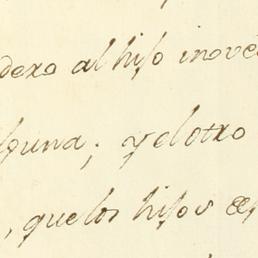 dexa al hijo inove
lguna; y el otro
, quelos hijos de